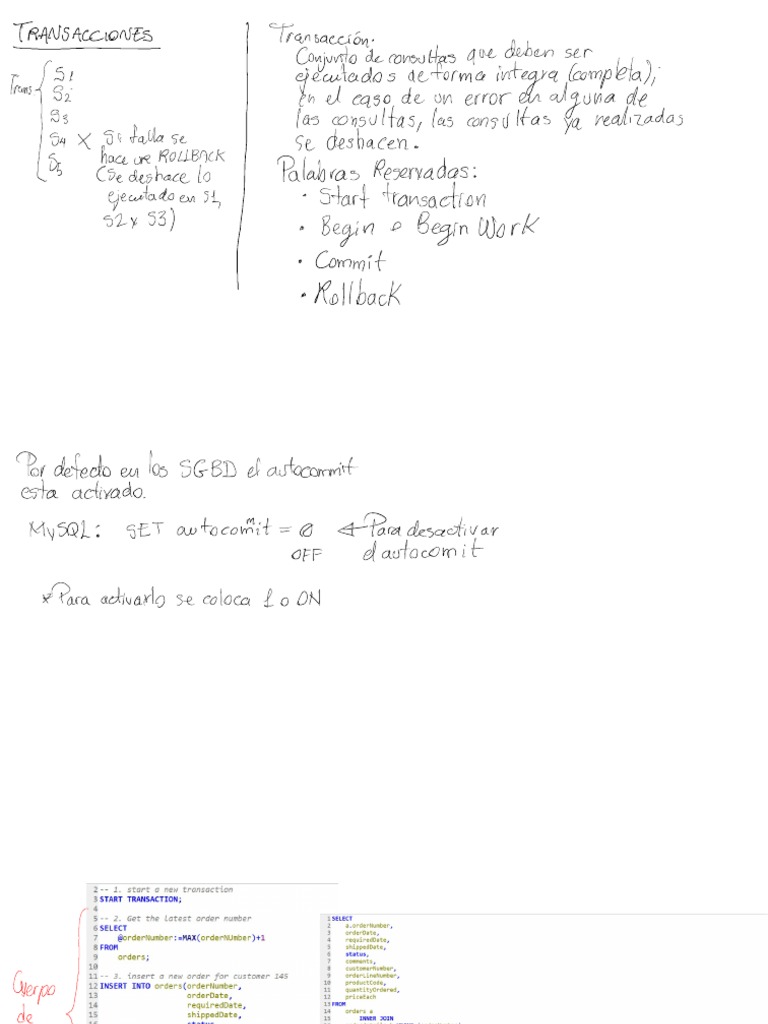 TRANSACCIONES
Trans
S1
S2
S3
S4 X Si falla se
hace un ROLLBACK
S5
(Se deshace lo
ejecutado en S1,
S2 y S3)
Transacción.
Conjunto de consultas que deben ser
ejecutados de forma integra (completa);
en el caso de un error en alguna de
las consultas, las consultas ya realizadas
se deshacen.
Palabras Reservadas:
• Start transaction
• Begin o Begin Work
• Commit
• Rollback
Por defecto en los SGBD el autocommit
esta activado.
MySQL: SET autocommit = 0 ← Para desactivar
OFF el autocomit
* Para activarlo se coloca 1 o ON
Cuerpo
de
2 -- 1. start a new transaction
3 START TRANSACTION;
4
5 -- 2. Get the latest order number
6 SELECT
7 @orderNumber:=MAX(orderNUmber)+1
8 FROM
9 orders;
10
11 -- 3. insert a new order for customer 145
12 INSERT INTO orders(orderNumber,
13 orderDate,
14 requiredDate,
15 shippedDate,
16 status,
1 SELECT
2 a.orderNumber,
3 orderDate,
4 requiredDate,
5 shippedDate,
6 status,
7 comments,
8 customerNumber,
9 orderLineNumber,
10 productCode,
11 quantityOrdered,
12 priceEach
13 FROM
14 orders a
15 INNER JOIN